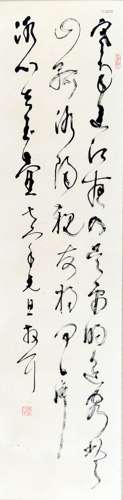 寒雨連江夜入吳平明送客楚
山孤洛陽親友如相問一片
冰心在玉壺 年元旦